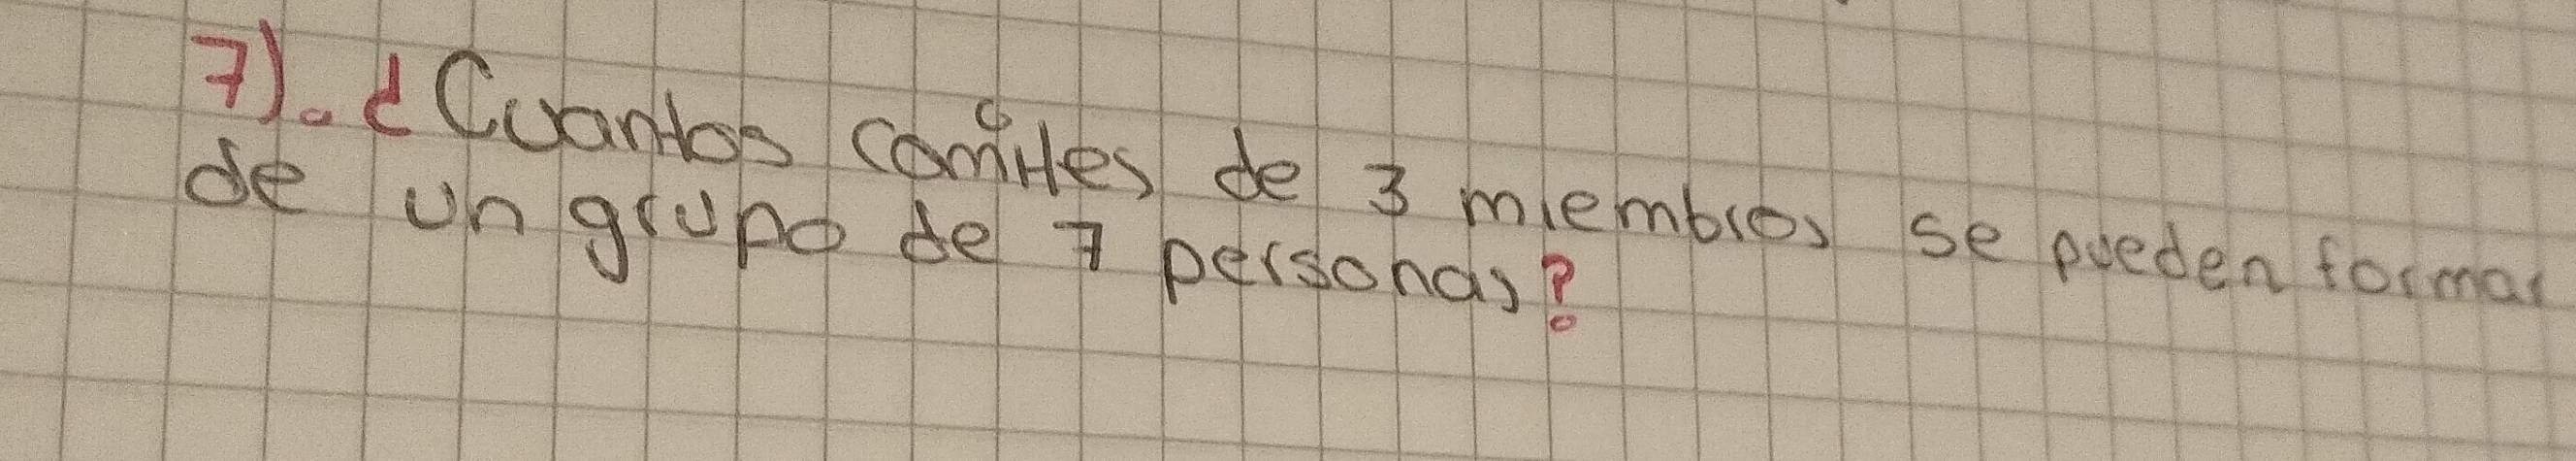 7). ¿Cuantos comites de 3 miembros se pueden formar
de un grupo de 7 personas?